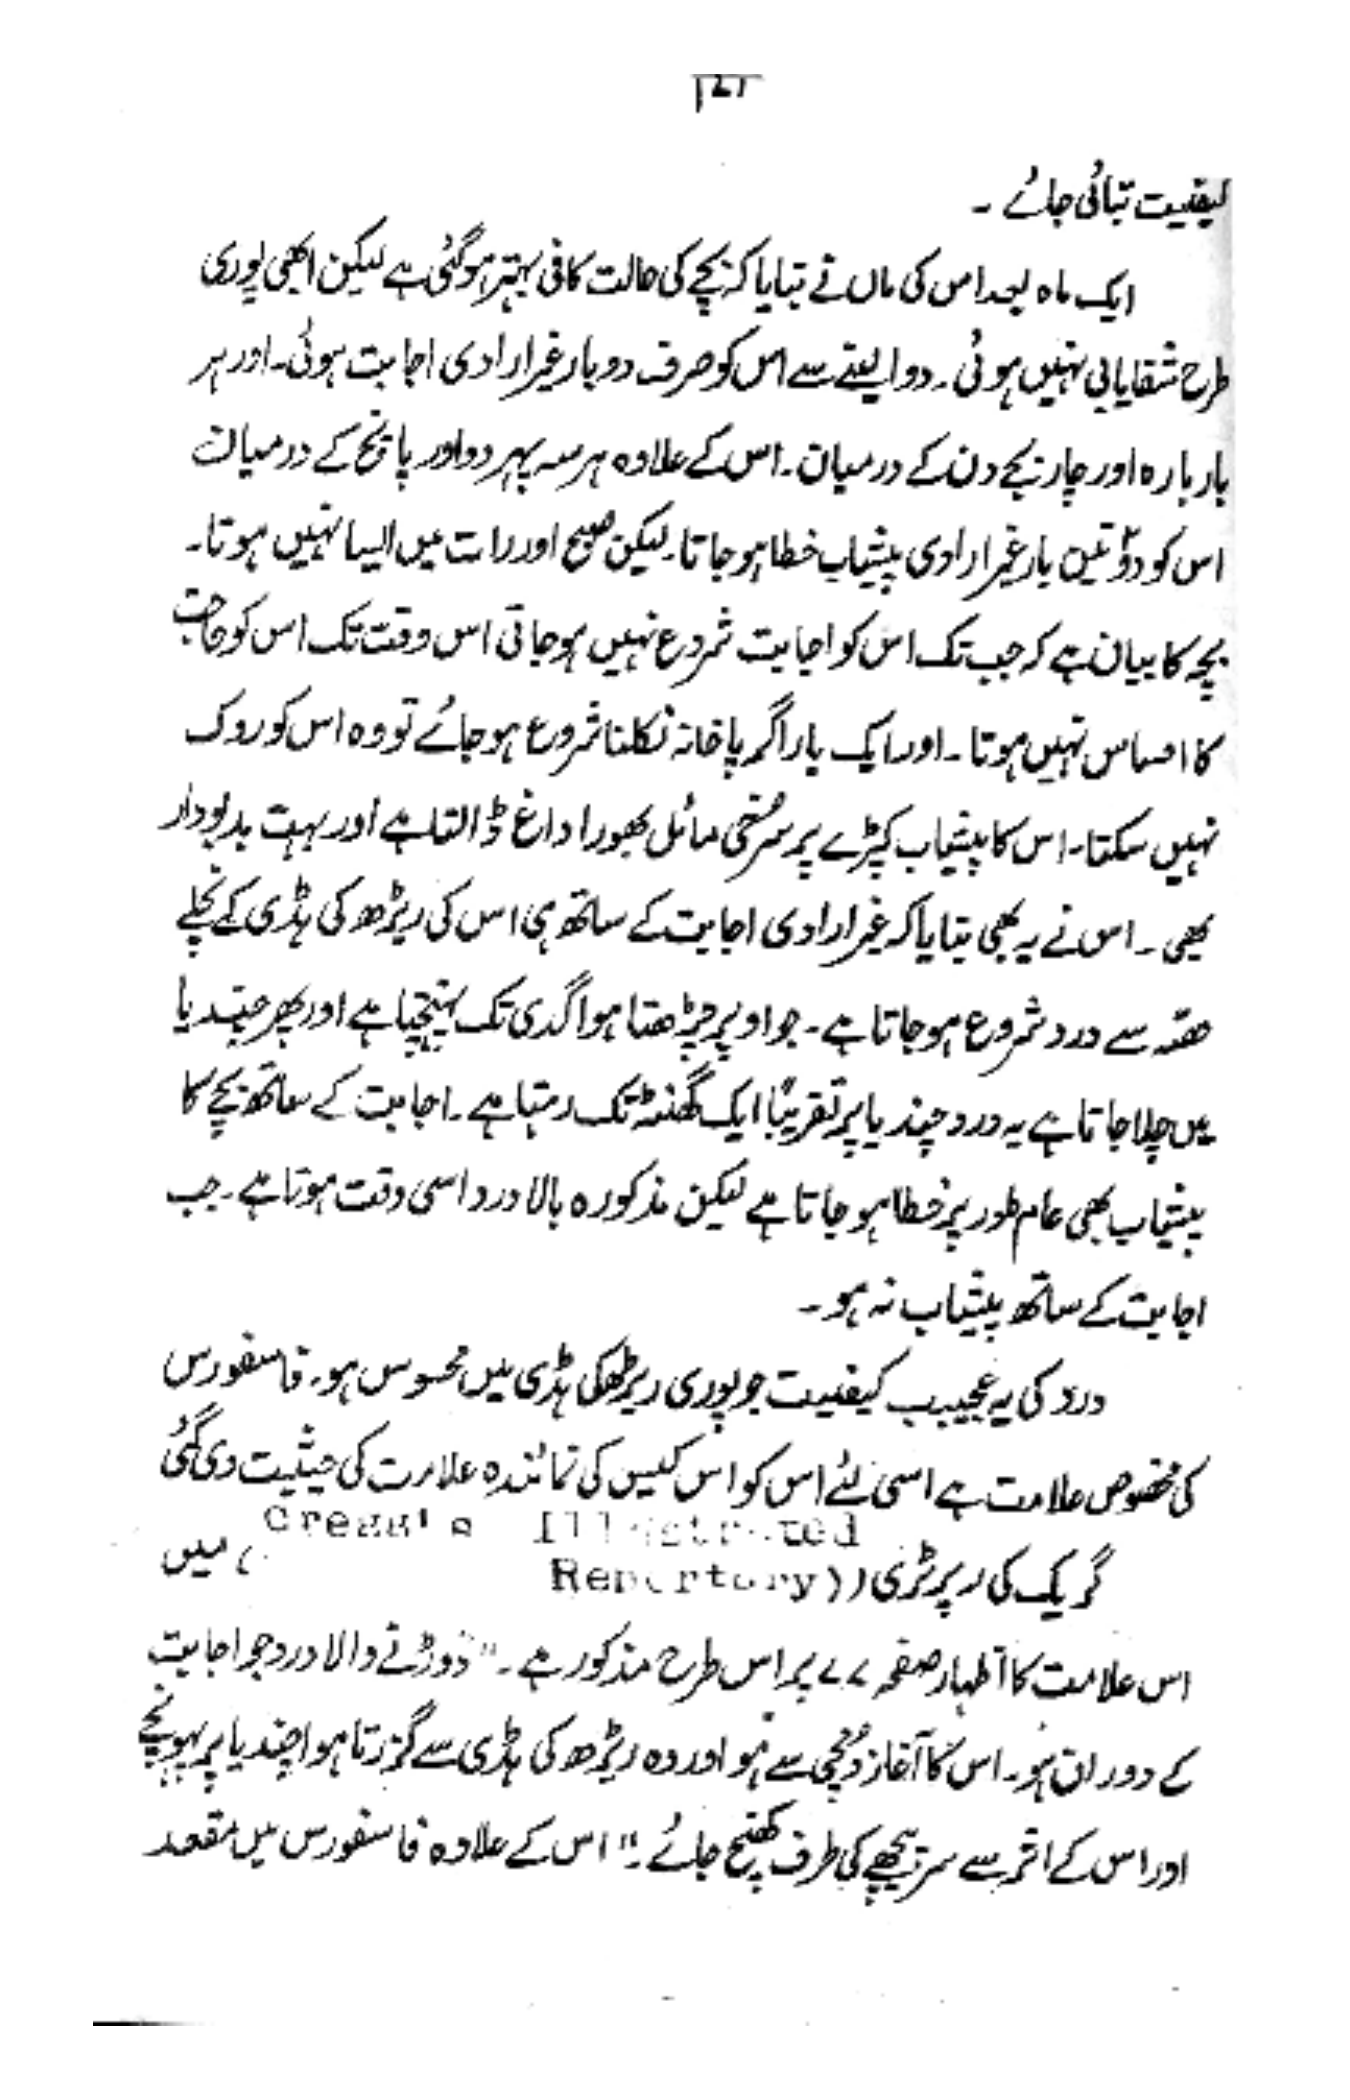 کیفیت بتائی جائے ۔
ایک ماہ بعد اس کی ماں نے بتایا کہ بچے کی حالت کافی بہتر ہو گئی ہے لیکن ابھی پوری
طرح شفایابی نہیں ہوئی ۔ دوا لینے سے اس کو صرف دو بار غیر ارادی اجابت ہوئی ۔ اور ہر
بار بارہ اور چار بجے دن کے درمیان ۔ اس کے علاوہ ہر سہ پہر دو اور پانچ کے درمیان
اس کو دو تین بار غیر ارادی پیشاب خطا ہو جاتا ۔ لیکن صبح اور رات میں ایسا نہیں ہوتا ۔
بچہ کا بیان ہے کہ جب تک اس کو اجابت شروع نہیں ہو جاتی اس وقت تک اس کو حاجت
کا احساس نہیں ہوتا ۔ اور ایک بار اگر پاخانہ نکلنا شروع ہو جائے تو وہ اس کو روک
نہیں سکتا ۔ اس کا پیشاب کپڑے پر سُرخی مائل بھورا داغ ڈالتا ہے اور بہت بدبودار
بھی ۔ اس نے یہ بھی بتایا کہ غیر ارادی اجابت کے ساتھ ہی اس کی ریڑھ کی ہڈی کے نچلے
حصّہ سے درد شروع ہو جاتا ہے ۔ جو اوپر چڑھتا ہوا گدی تک پہنچتا ہے اور پھر چندیا
میں چلا جاتا ہے یہ درد چندیا پر تقریباً ایک گھنٹہ تک رہتا ہے ۔ اجابت کے ساتھ بچے کا
پیشاب بھی عام طور پر خطا ہو جاتا ہے لیکن مذکورہ بالا درد اسی وقت ہوتا ہے ۔ جب
اجابت کے ساتھ پیشاب نہ ہو ۔
درد کی یہ عجیب کیفیت جو پوری ریڑھ کی ہڈی میں محسوس ہو ۔ فاسفورس
کی مخصوص علامت ہے اسی لئے اس کو اس کیس کی نمائندہ علامت کی حیثیت دی گئی
گریک کی رپرٹری (( Illustrated Repertory ) میں
اس علامت کا اظہار صفحہ ۷۷ پر اس طرح مذکور ہے ۔ " دوڑنے والا درد جو اجابت
کے دوران ہو ۔ اس کا آغاز دُمچی سے ہو اور وہ ریڑھ کی ہڈی سے گزرتا ہوا چندیا پر پہونچے
اور اس کے اثر سے سر پیچھے کی طرف کھنچ جائے ۔" اس کے علاوہ فاسفورس میں مقعد